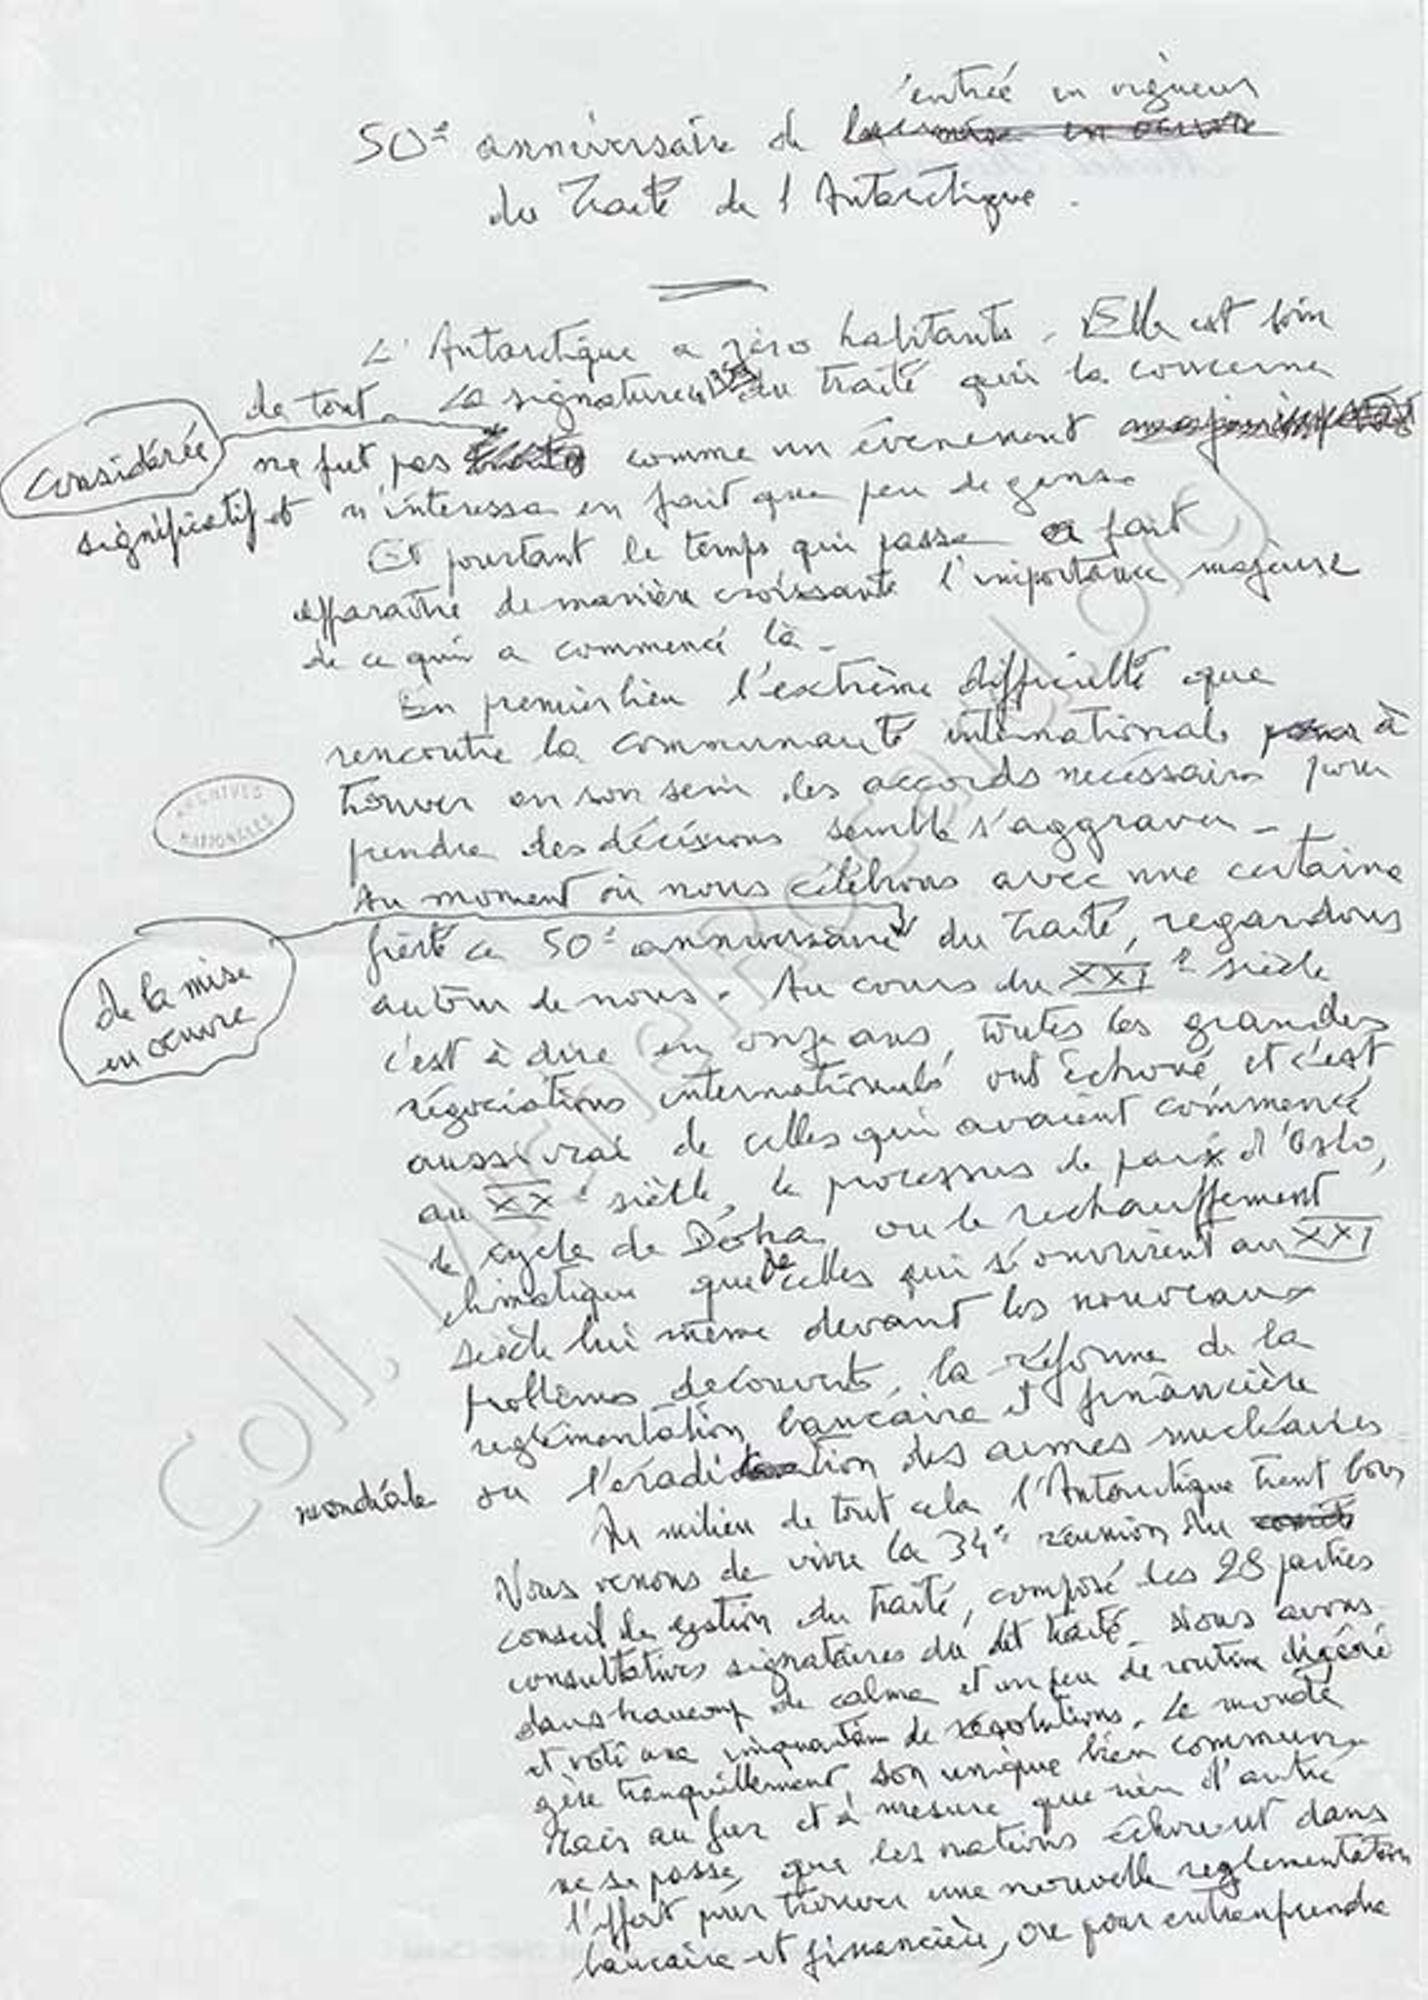 l'entrée en vigueur
50e anniversaire de la mise en œuvre
du Traité de l'Antarctique.
L'Antarctique a zéro habitants. Elle est loin
de tout. La signature en 1959 du traité qui la concerne
considérée
ne fut pas comme un évènement
significatif et n'intéressa en fait que peu de gens.
Et pourtant le temps qui passe a fait
apparaître de manière croissante l'importance majeure
de ce qui a commencé là.
En premier lieu l'extrême difficulté que
rencontre la communauté internationale pour à
trouver en son sein les accords nécessaires pour
ARCHIVES NATIONALES
prendre des décisions semble s'aggraver.
Au moment où nous célébrons avec une certaine
fierté ce 50e anniversaire du traité, regardons
de la mise
en œuvre
autour de nous. Au cours du XXIe siècle
c'est à dire en onze ans, toutes les grandes
négociations internationales ont échoué, et c'est
aussi vrai de celles qui avaient commencé
au XXe siècle, le processus de paix d'Oslo,
le cycle de Doha ou le rechauffement
climatique que de celles qui s'ouvrirent au XXI
siècle lui même devant les nouveaux
problèmes découverts, la réforme de la
reglementation bancaire et financière
mondiale ou l'éradication des armes nucléaires.
Au milieu de tout cela l'Antarctique tient bon
Nous venons de vivre la 34e réunion du comité
conseil de gestion du traité, composé des 28 parties
consultatives signataires du dit traité. Nous avons
dans beaucoup de calme et un peu de routine digéré
et voté une cinquantaine de résolutions. Le monde
gère tranquillement son unique bien commun.
Mais au fur et à mesure que rien d'autre
ne se passe, que les nations échouent dans
l'effort pour trouver une nouvelle reglementation
bancaire et financière, ou pour entreprendre
Coll. MichelRocard.org